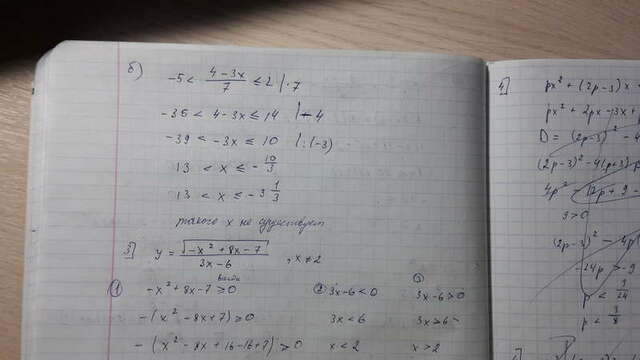 б)
-5 < (4-3x)/7 ≤ 2 | ·7
-35 < 4-3x ≤ 14 | -4
-39 < -3x ≤ 10 | :(-3)
13 < x ≤ -10/3
13 < x ≤ -3 1/3
такого x не существует
3] y = √(-x²+8x-7) / (3x-6) , x≠2
① -x²+8x-7 ≥ 0 ② 3x-6<0 ③ 3x-6>0
-(x²-8x+7) ≥ 0 3x<6 3x>6
-(x²-8x+16-16+7) ≥ 0 x<2 x>2
4] px² + (2p-3)x
px² + 2px - 3x +
D = (2p-3)² - 4
(2p-3)² - 4(p+3)p
4p² - 12p + 9 -
3>0
(2p-3)² - 4p
-24p > -9
p < 9/24
p < 3/8